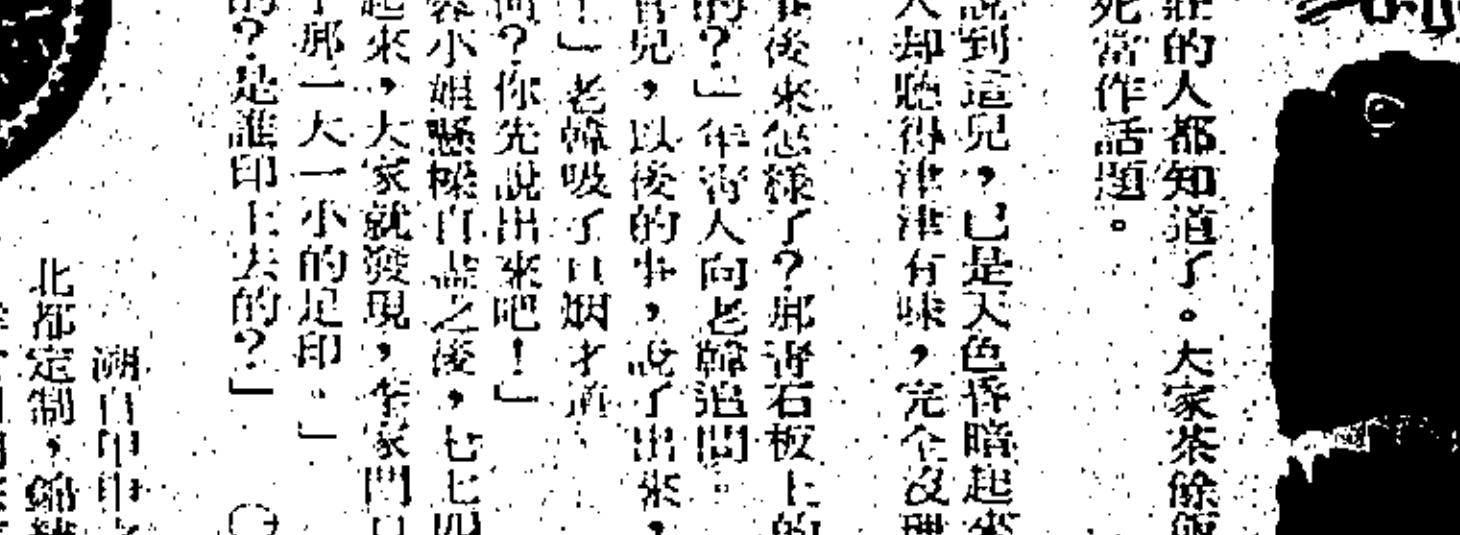 莊的人都知道了。大家茶餘飯
死當作話題。
說到這兒，已是天色昏暗起來
人却聽得津津有味，完全沒理
後來怎樣了？那青石板上的
的？」年青人向老韓追問。
官兒，以後的事，說了出來，
！」老韓吸了口烟才道
？你先說出來吧！」
小姐懸樑自盡之後，七七四
起來，大家就發現，李家門口
那一大一小的足印。」
的？是誰印上去的？」
溯自甲申之
北都定制，